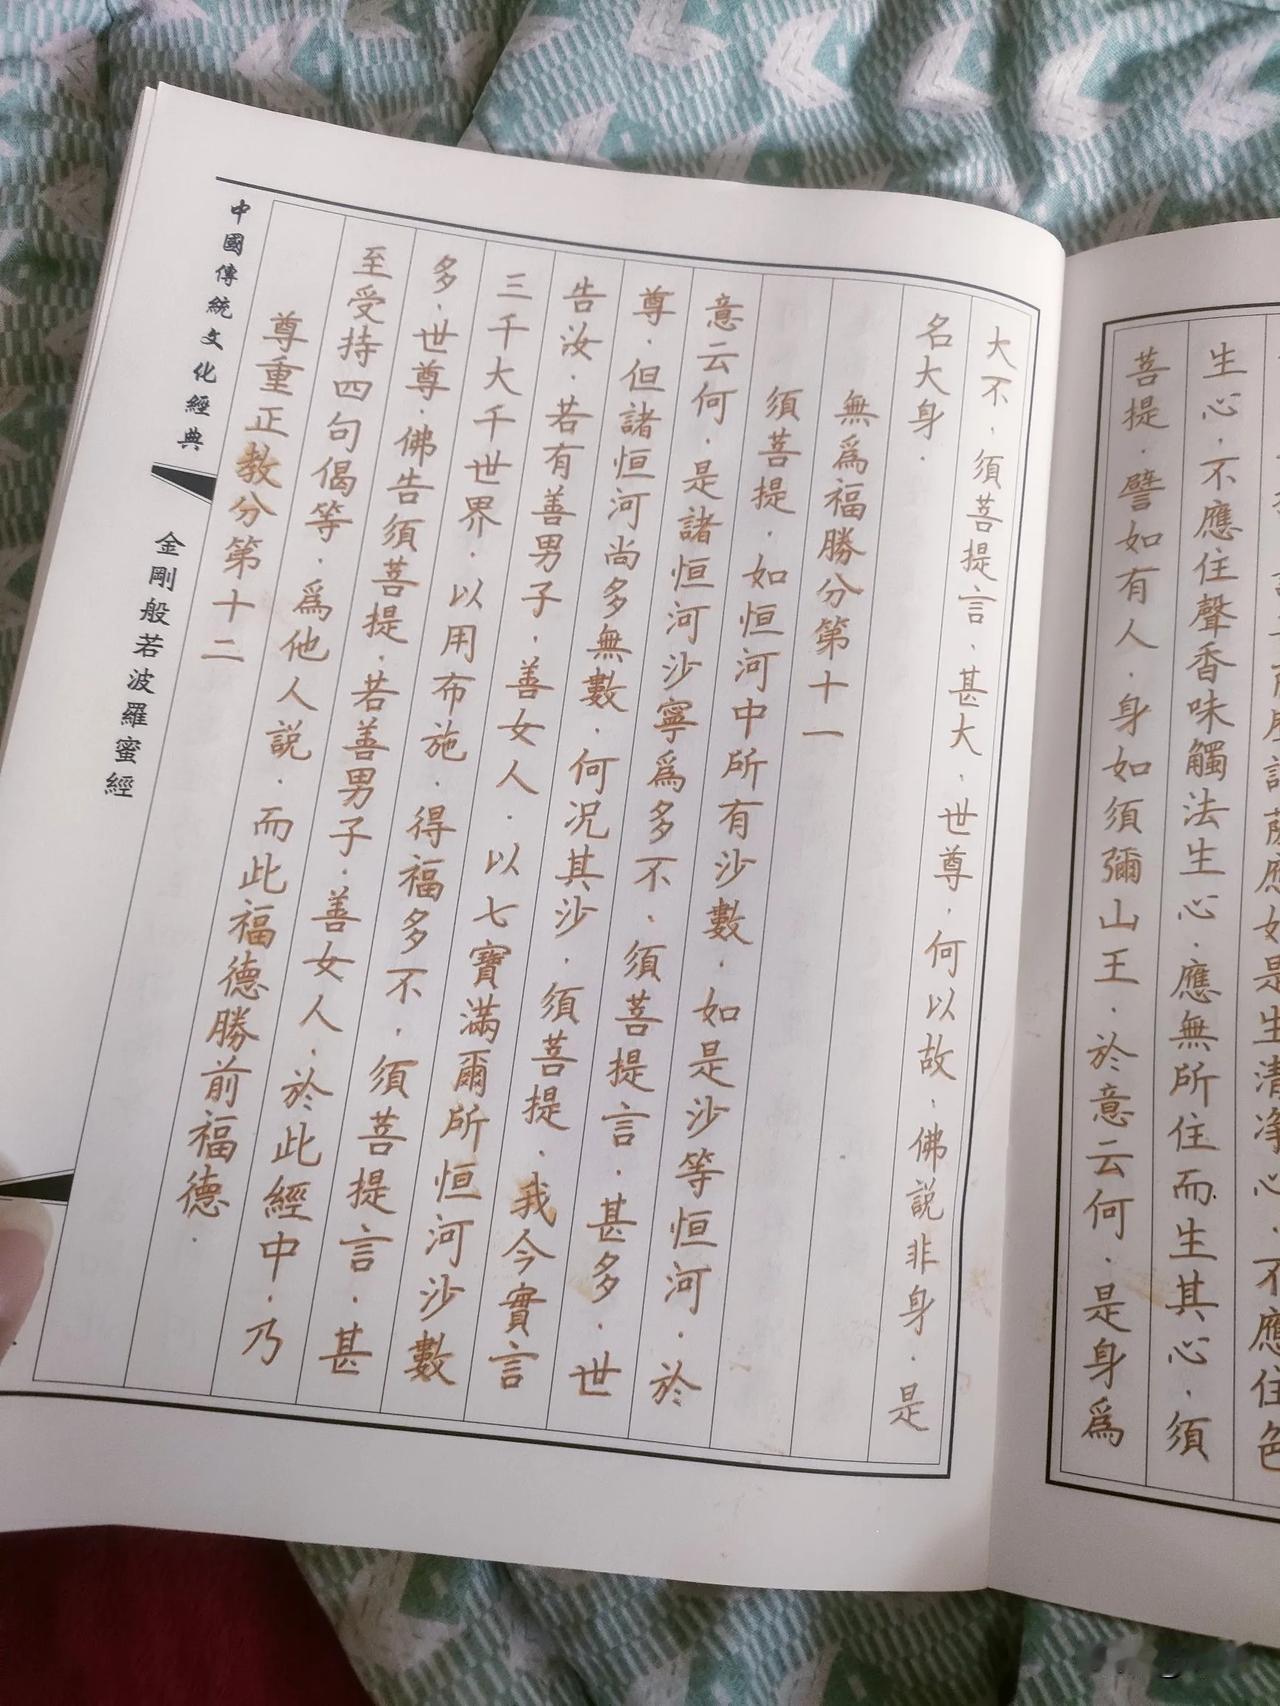 薩應如是生清淨心.不應住色
生心.不應住聲香味觸法生心.應無所住而生其心.須
菩提.譬如有人.身如須彌山王.於意云何.是身爲
大不.須菩提言.甚大.世尊.何以故.佛説非身.是
名大身.
無爲福勝分第十一
須菩提.如恒河中所有沙數.如是沙等恒河.於
意云何.是諸恒河沙寧爲多不.須菩提言.甚多.世
尊.但諸恒河尚多無數.何况其沙.須菩提.我今實言
告汝.若有善男子.善女人.以七寶滿爾所恒河沙數
三千大千世界.以用布施.得福多不.須菩提言.甚
多.世尊.佛告須菩提.若善男子.善女人.於此經中.乃
至受持四句偈等.爲他人説.而此福德勝前福德.
尊重正教分第十二
中國傳統文化經典
金剛般若波羅蜜經